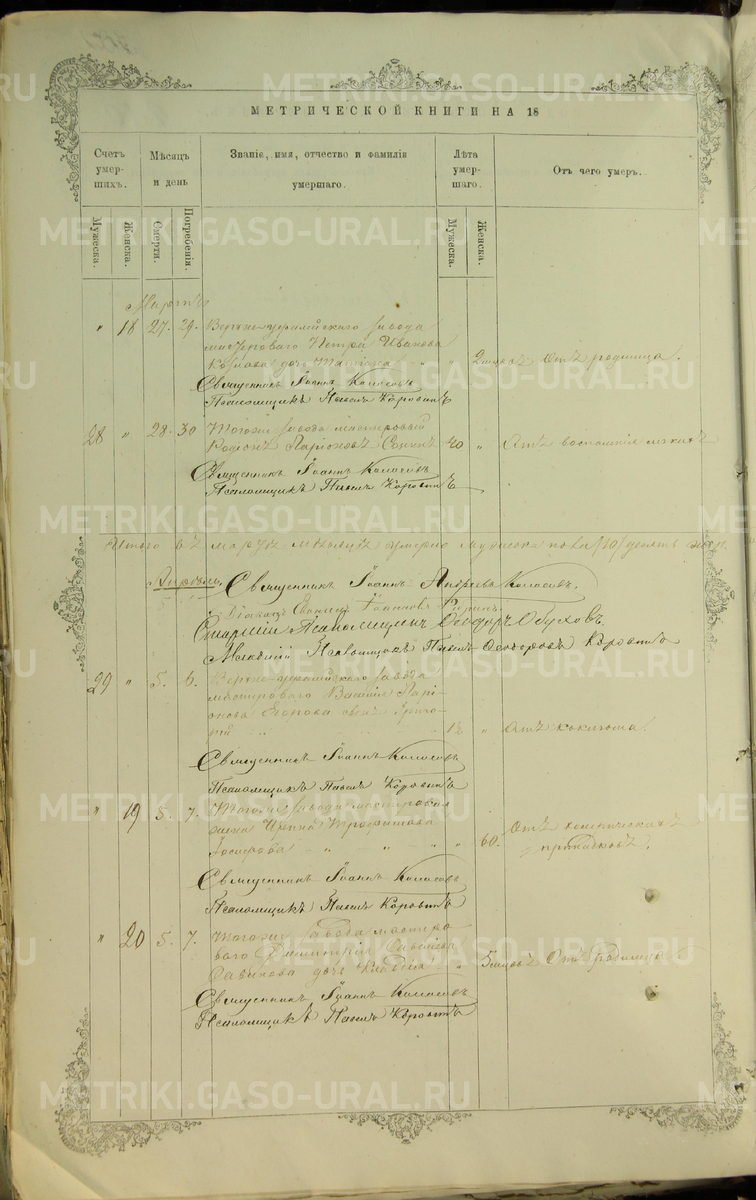 МЕТРИЧЕСКОЙ КНИГИ НА 18
Счетъ умер-шихъ.
Мѣсяцъ и день
Званіе, имя, отчество и фамилія умершаго.
Лѣта умер-шаго.
Отъ чего умеръ.
Мужеска.
Женска.
Смерти.
Погребенія.
Мужеска.
Женска.
Мартъ
" 18 27. 29. Верхне-уфалейскаго завода
мастероваго Петра Иванова
дочь " 2 Отъ родимца.
Священникъ Іоаннъ Колосовъ
Псаломщикъ Павелъ Коровинъ
28 " 28. 30 Тогоже завода мастеровый
Родіонъ Ларіоновъ 40 " Отъ воспаленія легкихъ
Священникъ Іоаннъ Колосовъ
Псаломщикъ Павелъ Коровинъ
Итого въ мартѣ мѣсяцѣ умерло мужеска пола /10/ десять
Апрѣль
Священникъ Іоаннъ Андреевъ Колосовъ.
Діаконъ
Старшій Псаломщикъ Ѳеодоръ Обуховъ.
Младшій Псаломщикъ Павелъ Ѳеодоровъ Коровинъ
29 " 5. 6. Верхне-уфалейскаго завода
мастероваго Василія Лари-
онова сынъ Григо-
рій " Отъ коклюша.
Священникъ Іоаннъ Колосовъ
Псаломщикъ Павелъ Коровинъ
" 19 5. 7. Тогоже завода мастерова
жена Ирина Трофимова
" " " " 60. Отъ
припадковъ.
Священникъ Іоаннъ Колосовъ
Псаломщикъ Павелъ Коровинъ
" 20 5. 7. Тогоже завода мастеро-
ваго Димитрія Савинова
дочь Клавдія " 5 Отъ родимца.
Священникъ Іоаннъ Колосовъ
Псаломщикъ Павелъ Коровинъ
METRIKI.GASO-URAL.RU